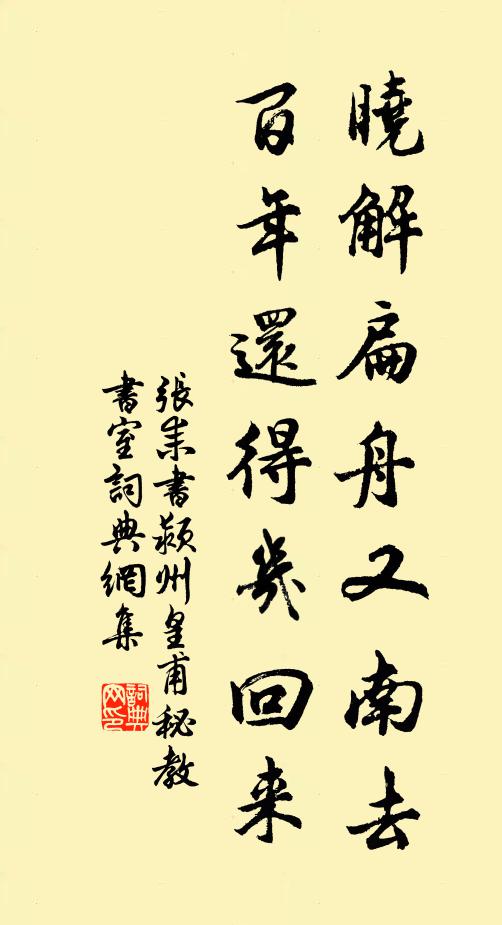 曉解扁舟又南去
百年還得幾回来
張耒書潁州皇甫秘教
書室詞典網集
詞典网印